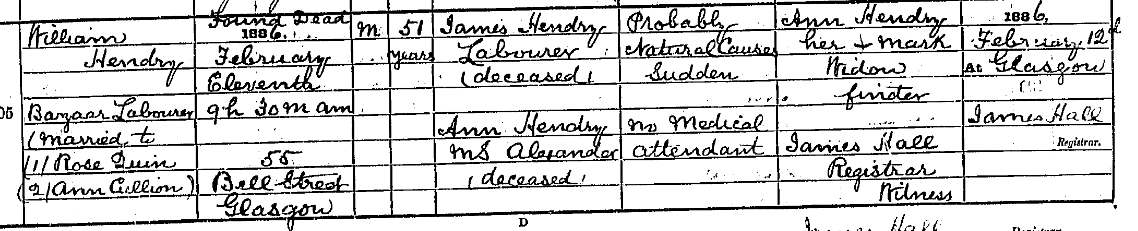 William
Hendry
05
Bazaar Labourer
(Married to
(1) Rose Quin
(2) Ann Cullion)
Found Dead
1886,
February
Eleventh
9h 30m am
55
Bell Street
Glasgow
M
51
years
James Hendry
Labourer
(deceased)
Ann Hendry
MS Alexander
(deceased)
Probably
Natural Causes
Sudden
no Medical
attendant
Ann Hendry
her + mark
Widow
James Hall
Registrar
Witness
1886,
February 12th
At Glasgow
James Hall
Registrar.
D
James Hall
Registrar